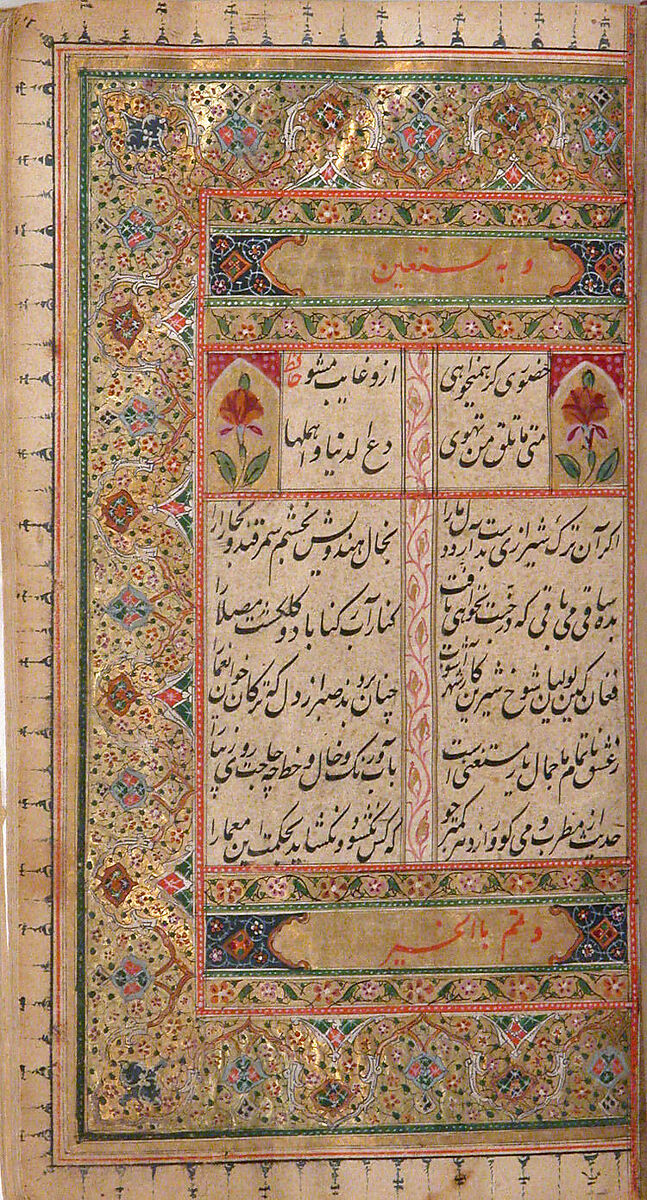 و به نستعین
حضوری گر همیخواهی ازو غایب مشو حافظ
متی ما تلق من تهوی دع الدنیا و اهملها
اگر آن ترک شیرازی بدست آرد دل ما را بخال هندویش بخشم سمرقند و بخارا را
بده ساقی می باقی که در جنت نخواهی یافت کنار آب رکناباد و گلگشت مصلا را
فغان کین لولیان شوخ شیرین کار شهرآشوب چنان بردند صبر از دل که ترکان خوان یغما را
ز عشق ناتمام ما جمال یار مستغنی است بآب و رنگ و خال و خط چه حاجت روی زیبا را
حدیث از مطرب و می گو و راز دهر کمتر جو که کس نگشود و نگشاید بحکمت این معما را
و تمم باالخیر